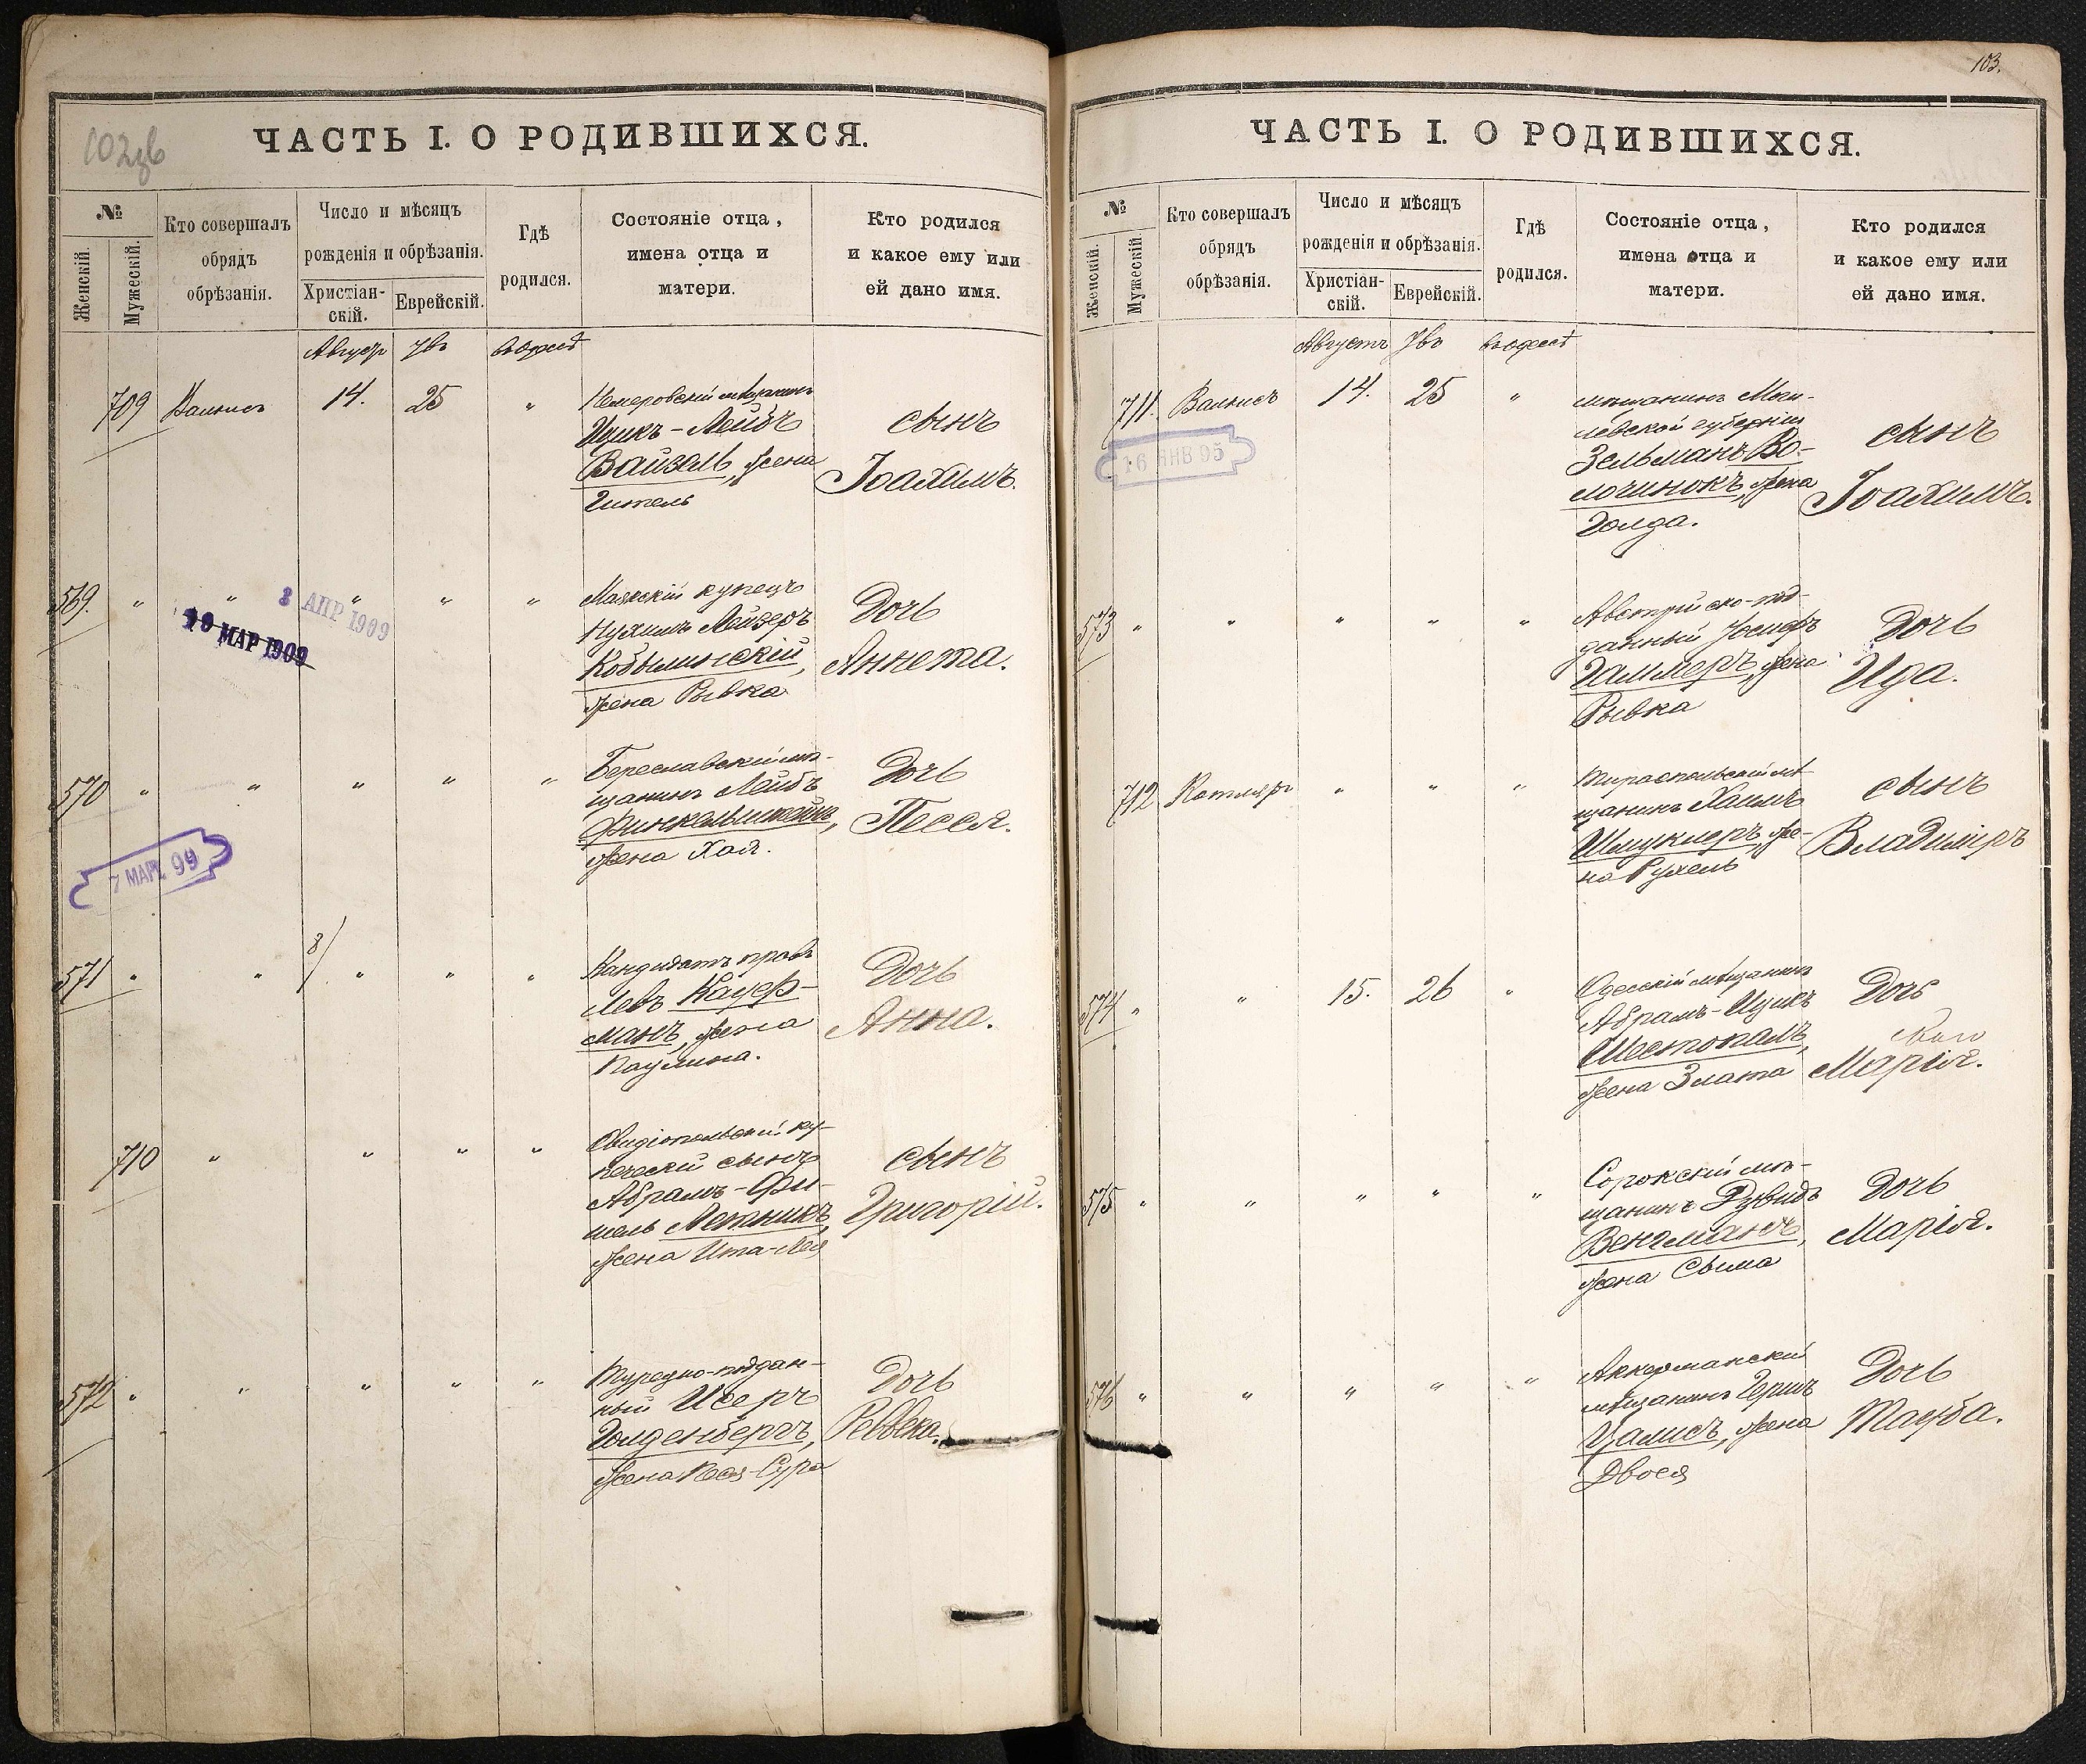 102зв
ЧАСТЬ I. О РОДИВШИХСЯ.
№
Женскій.
Мужескій.
Кто совершалъ
обрядъ
обрѣзанія.
Число и мѣсяцъ
рожденія и обрѣзанія.
Христіан-
скій.
Еврейскій.
Гдѣ
родился.
Состояніе отца,
имена отца и
матери.
Кто родился
и какое ему или
ей дано имя.
Августъ
въ Одессѣ
709
14.
25
"
Немеровскій мѣщанинъ
Ицикъ-Лейбъ
Вайзель, жена
Гитель
сынъ
Іоахимъ.
569.
" " " " "
3 АПР 1909
19 МАР 1909
Маякскій купецъ
Нухимъ Лейзеръ
Кобылинскій,
жена Рывка
Дочь
Аннета.
570
" " " " "
7 МАР. 99
Береславскій мѣ-
щанинъ Лейбъ
Финкельштейнъ,
жена Хая.
Дочь
Песся.
571
" " 8/ " " "
Кандидатъ правъ
Левъ Кауф-
манъ, жена
Паулина.
Дочь
Анна.
710
" " " "
Овидіопольскій ку-
печескій сынъ
Абрамъ-Фи-
шель Летникъ,
жена Ита-Лея
сынъ
Григорій.
572
" " " " "
Турецко-поддан-
ный Исеръ
Голденбергъ,
жена Песя-Сура
Дочь
Реввека.
103.
ЧАСТЬ I. О РОДИВШИХСЯ.
№
Женскій.
Мужескій
Кто совершалъ
обрядъ
обрѣзанія.
Число и мѣсяцъ
рожденія и обрѣзанія.
Христіан-
скій.
Еврейскій.
Гдѣ
родился.
Состояніе отца,
имена отца и
матери.
Кто родился
и какое ему или
ей дано имя.
Августъ
въ Одессѣ
711.
14.
25
"
16 ЯНВ 95
мѣщанинъ Моги-
левской губерніи
Зельманъ Во-
лочинокъ, жена
Голда.
сынъ
Іоахимъ.
573
" " " " "
Австрійско-под-
данный Іосифъ
Гаммеръ, жена
Рывка
Дочь
Ида.
712
Котляръ
" " "
Тираспольскій мѣ
щанинъ Хаимъ
Шмуклеръ, же-
на Рухель
сынъ
Владиміръ
574
" "
15.
26
"
Одесскій мѣщанинъ
Абрамъ-Ицикъ
Шестопалъ,
жена Злата
Дочь
Марія.
575
" " " " "
Сорокскій мѣ-
щанинъ Дувидъ
Венгманъ,
жена Сыма
Дочь
Марія.
576
" " " " "
Аккерманскій
мѣщанинъ Гершъ
Цалисъ, жена
Двося
Дочь
Тауба.